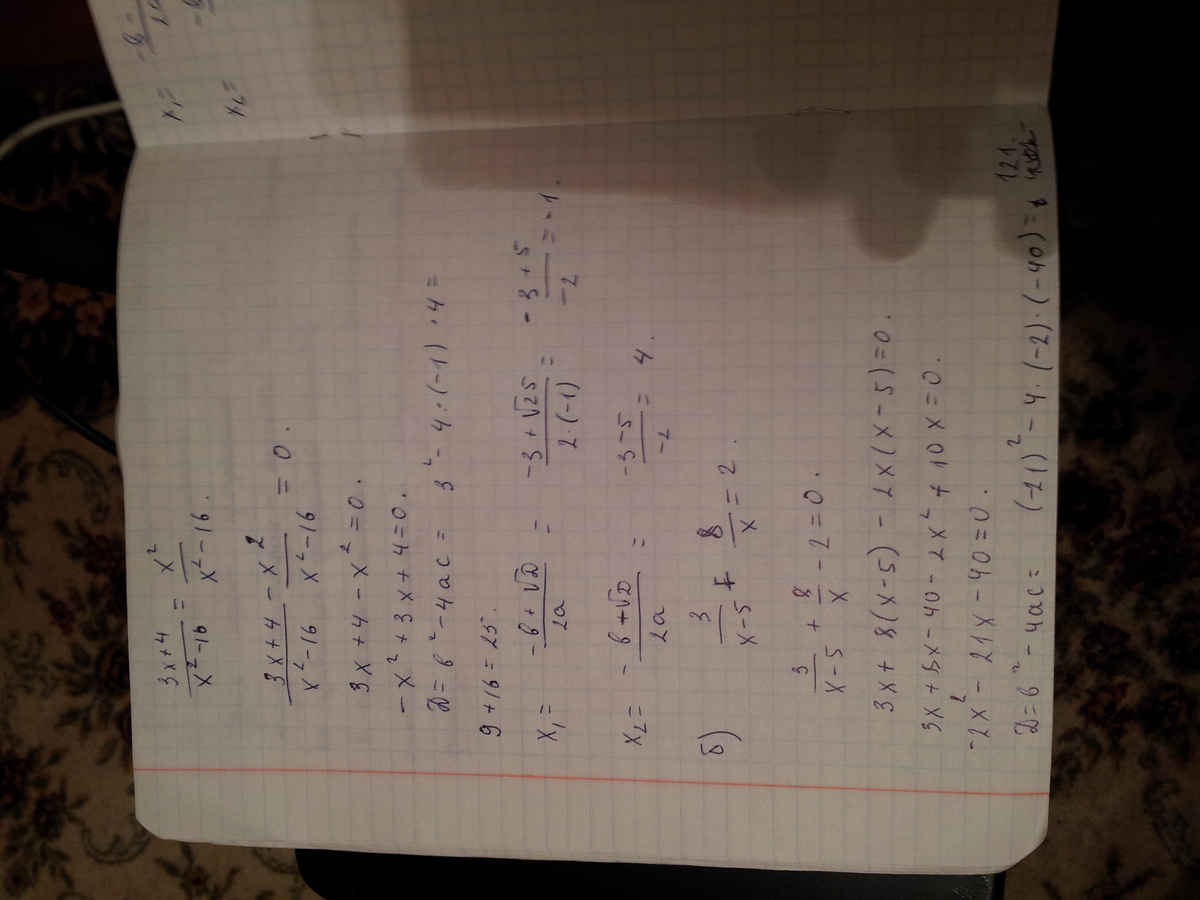 (3x+4)/(x²-16) = x²/(x²-16).
(3x+4)/(x²-16) - x²/(x²-16) = 0.
3x+4-x²=0.
-x²+3x+4=0.
D=b²-4ac= 3²-4·(-1)·4=
9+16=25.
x₁= (-b+√D)/2a = (-3+√25)/(2·(-1)) = (-3+5)/-2 = -1.
x₂= (-b+√D)/2a = (-3-5)/-2 = 4.
б) 3/(x-5) + 8/x = 2.
3/(x-5) + 8/x - 2=0.
3x+8(x-5)-2x(x-5)=0.
3x+8x-40-2x²+10x=0.
-2x²-21x-40=0.
D=b²-4ac= (-21)²-4·(-2)·(-40)= 121.
x₁= -b-/2a
x₂= -b